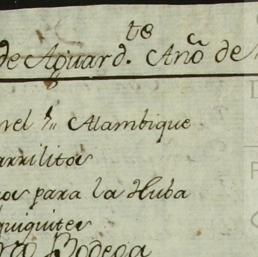 de Aguard.te Año de
rel p.a Alambique
arrilitos
os para la Huba
quiquites
Bodega